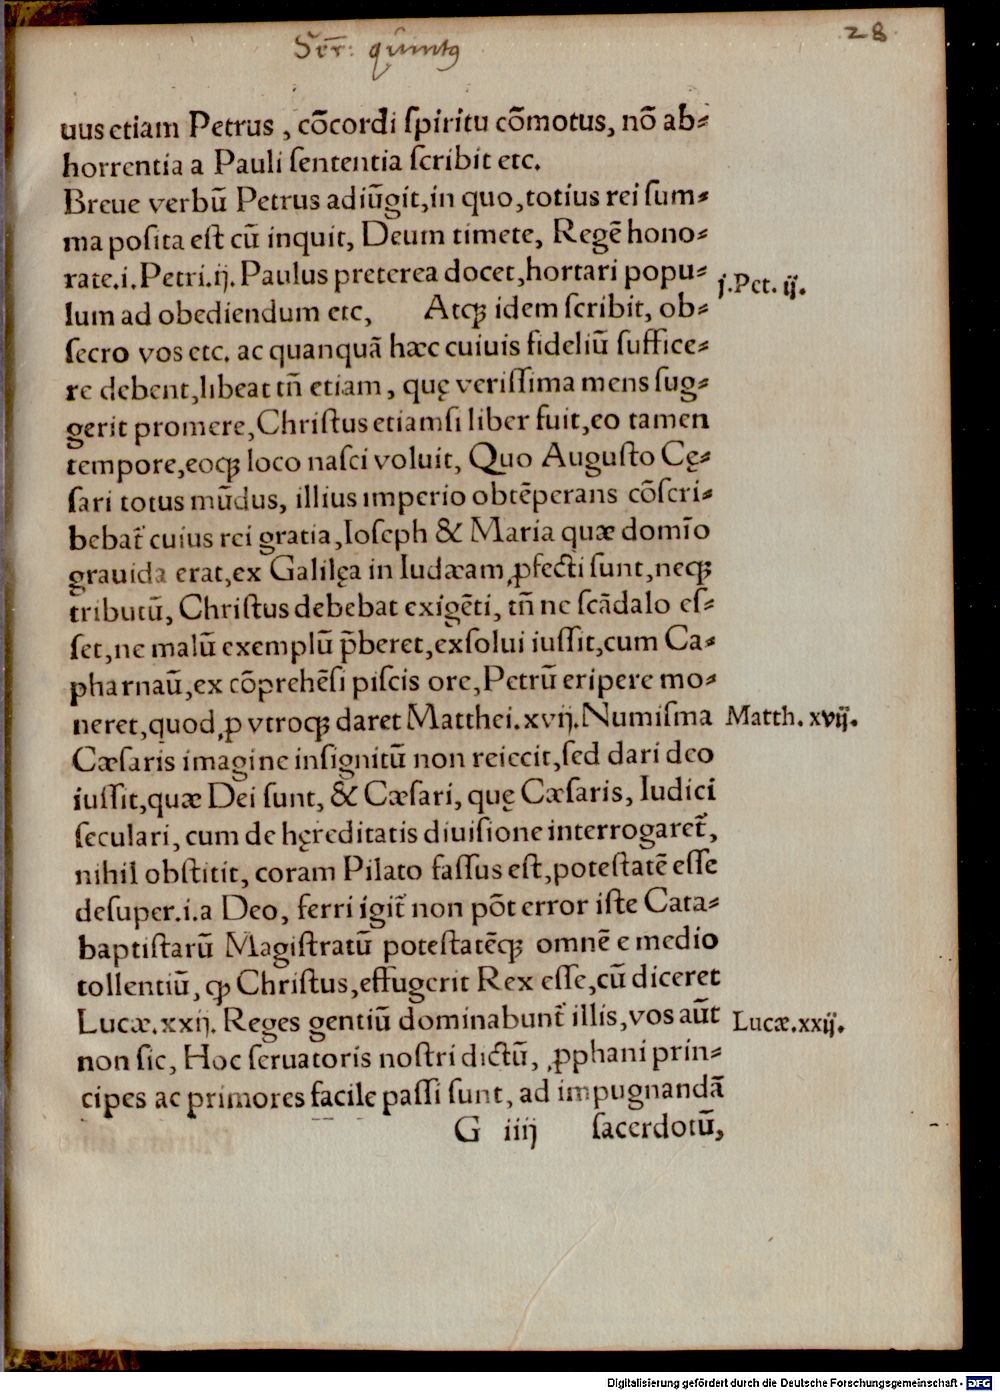 Ser: quintꝰ
28
uus etiam Petrus, cõcordi ſpiritu cõmotus, nõ ab⸗
horrentia a Pauli ſententia ſcribit etc.
Breue verbũ Petrus adiũgit, in quo, totius rei ſum⸗
ma poſita eſt cũ inquit, Deum timete, Regẽ hono⸗
rate.i.Petri.ij. Paulus preterea docet, hortari popu⸗
j.Pet. ij.
lum ad obediendum etc, Atqꝫ idem ſcribit, ob⸗
ſecro vos etc. ac quanquã hæc cuiuis fideliũ ſuffice⸗
re debent, libeat tñ etiam, quę veriſſima mens ſug⸗
gerit promere, Chriſtus etiamsi liber fuit, eo tamen
tempore, eoqꝫ loco naſci voluit, Quo Auguſto Cę⸗
ſari totus mũdus, illius imperio obtẽperans cõſcri⸗
bebat᷑ cuius rei gratia, Ioſeph & Maria quæ domĩo
grauida erat, ex Galilęa in Iudæam ꝓfecti ſunt, neqꝫ
tributũ, Chriſtus debebat exigẽti, tñ ne ſcãdalo eſ⸗
ſet, ne malũ exemplũ p̃beret, exſolui iuſſit, cum Ca⸗
pharnaũ, ex cõprehẽſi piſcis ore, Petrũ eripere mo⸗
neret, quod, ꝓ vtroqꝫ daret Matthei.xvij. Numiſma
Matth. xvij.
Cæſaris imagine inſignitũ non reiecit, ſed dari deo
iuſſit, quæ Dei ſunt, & Cæſari, quę Cæſaris, Iudici
ſeculari, cum de hęreditatis diuiſione interrogaret᷑,
nihil obſtitit, coram Pilato faſſus eſt, poteſtatẽ eſſe
deſuper.i.a Deo, ferri igit᷑ non põt error iſte Cata⸗
baptiſtarũ Magiſtratũ poteſtatẽqꝫ omnẽ e medio
tollentiũ, ꝙ Chriſtus, effugerit Rex eſſe, cũ diceret
Lucæ.xxij. Reges gentiũ dominabunt᷑ illis, vos aũt
Lucæ.xxij.
non ſic, Hoc ſeruatoris noſtri dictũ, ꝓphani prin⸗
cipes ac primores facile paſſi ſunt, ad impugnandã
G iiij ſacerdotũ,
Digitalisierung gefördert durch die Deutsche Forschungsgemeinschaft - DFG